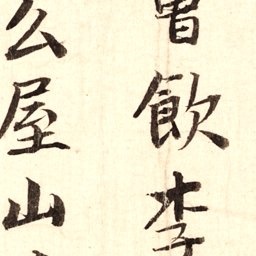 飲李
么屋山